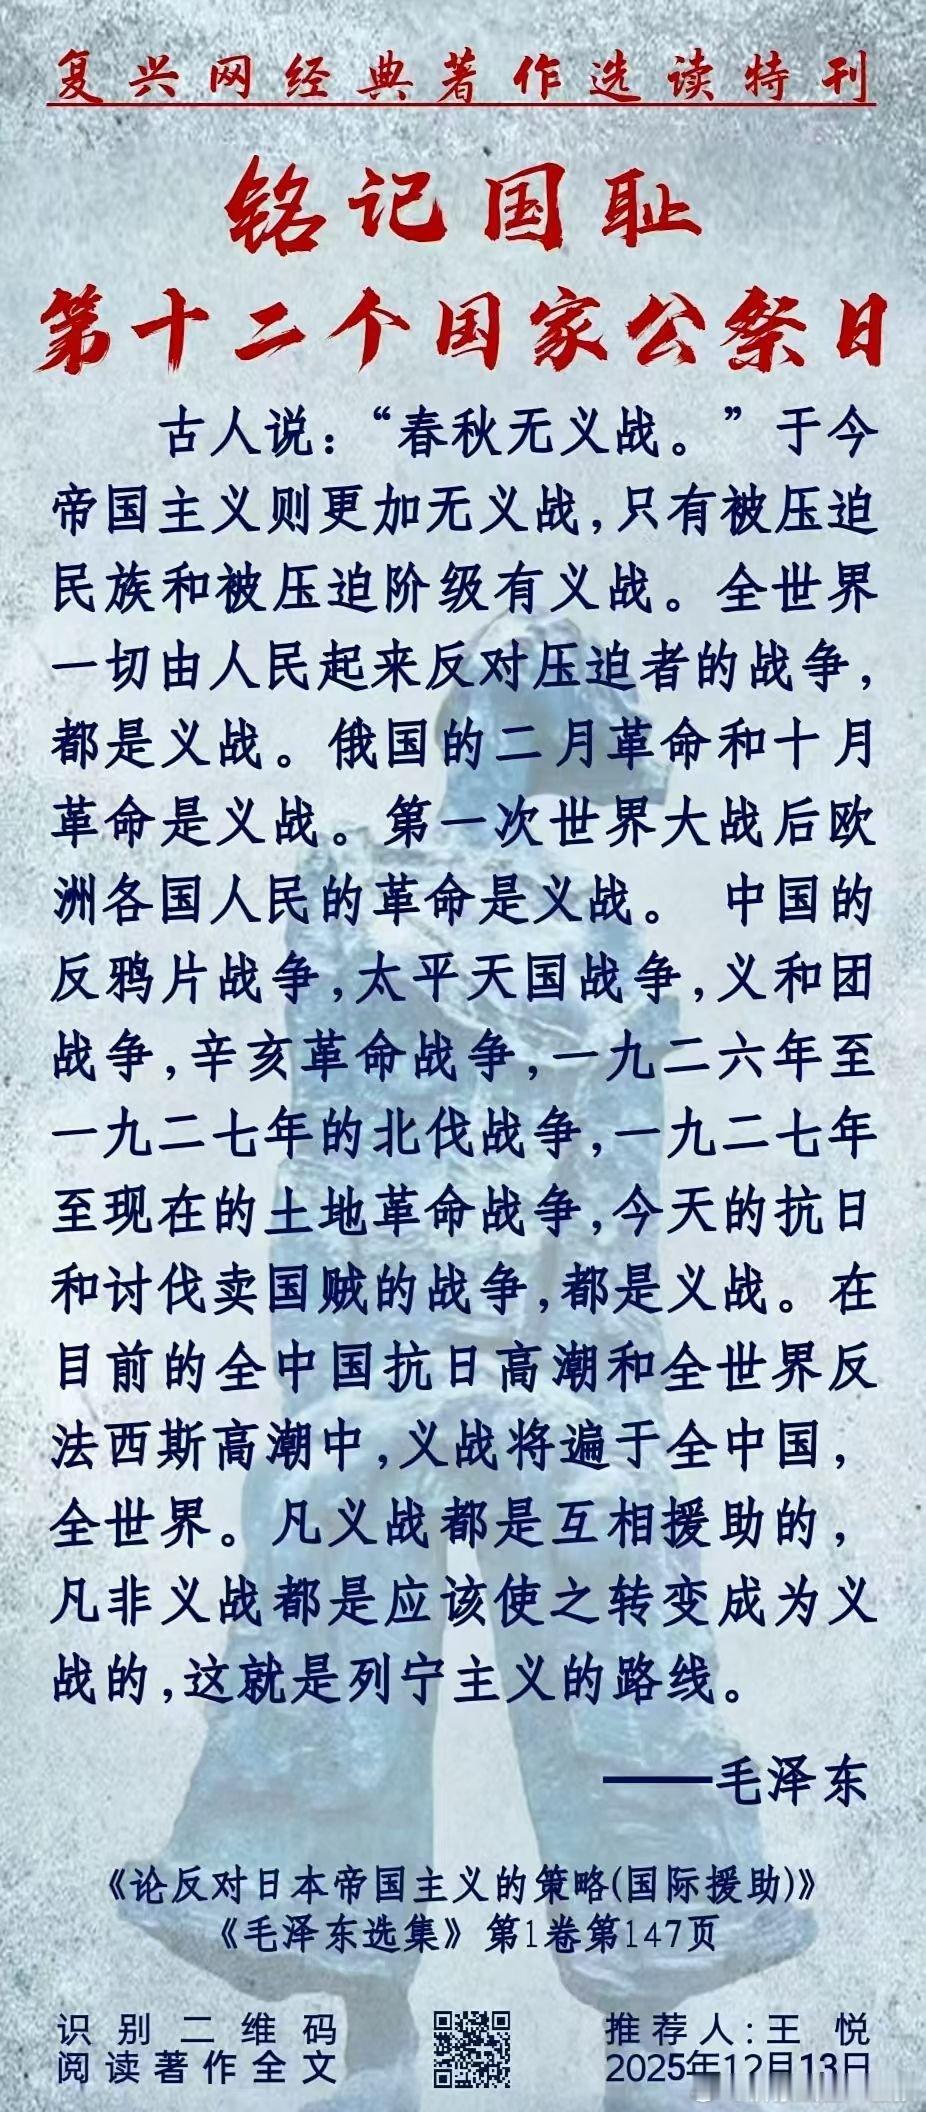 复兴网经典著作选读特刊
铭记国耻
第十二个国家公祭日
古人说：“春秋无义战。”于今
帝国主义则更加无义战，只有被压迫
民族和被压迫阶级有义战。全世界
一切由人民起来反对压迫者的战争，
都是义战。俄国的二月革命和十月
革命是义战。第一次世界大战后欧
洲各国人民的革命是义战。 中国的
反鸦片战争，太平天国战争，义和团
战争，辛亥革命战争，一九二六年至
一九二七年的北伐战争，一九二七年
至现在的土地革命战争，今天的抗日
和讨伐卖国贼的战争，都是义战。在
目前的全中国抗日高潮和全世界反
法西斯高潮中，义战将遍于全中国，
全世界。凡义战都是互相援助的，
凡非义战都是应该使之转变成为义
战的，这就是列宁主义的路线。
——毛泽东
《论反对日本帝国主义的策略(国际援助)》
《毛泽东选集》第1卷第147页
识别二维码
阅读著作全文
推荐人：王 悦
2025年12月13日